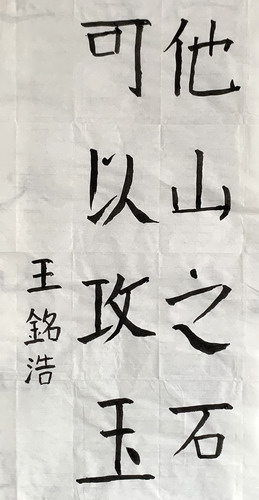 他山之石
可以攻玉
王銘浩